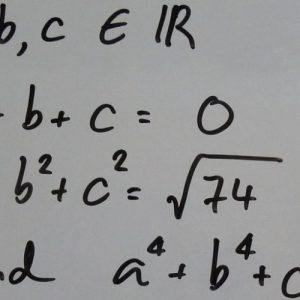 b, c ∈ ℝ
+ b + c = 0
b² + c² = √74
nd a⁴ + b⁴ + c